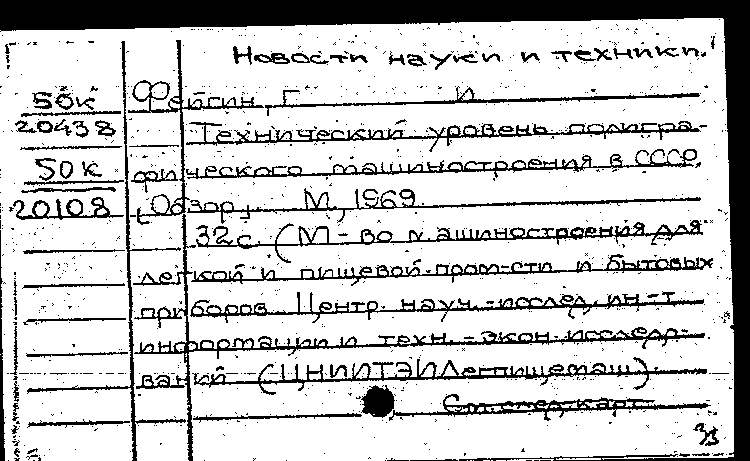 Новости науки и техники.
50к Фейгин, Г. И
20438 Технический уровень полигра-
50к фического машиностроения в СССР.
20108 [Обзор]. М, 1969.
32с. (М-во машиностроения для
легкой и пищевой пром-сти и бытовых
приборов Центр. науч.-исслед. ин-т
информации и техн.-экон. исследо-
ваний (ЦНИИТЭИЛегпищемаш).
См. след. карт.